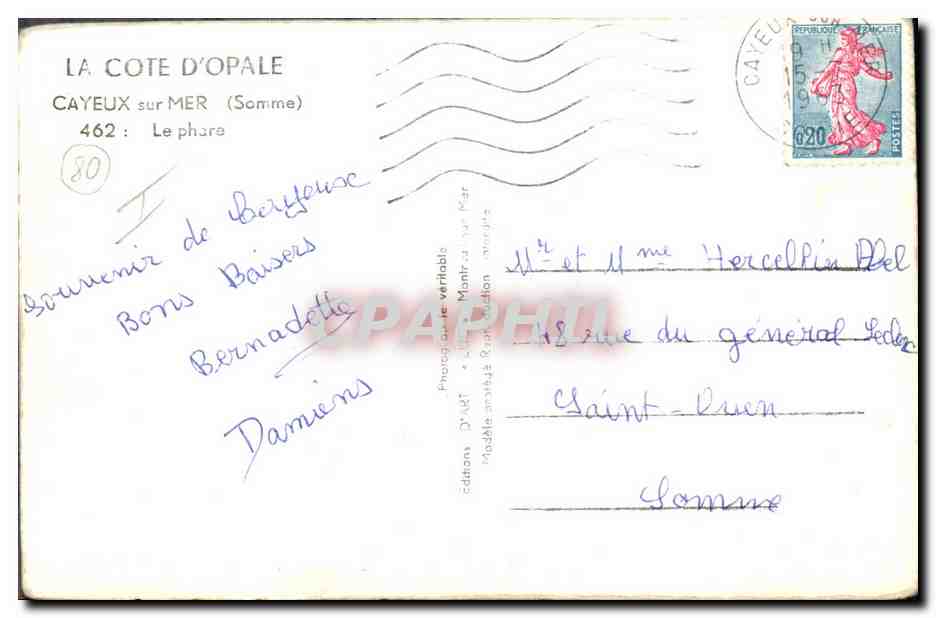 LA COTE D'OPALE
CAYEUX sur MER (Somme)
462 : Le phare
80
Souvenir de Cayeux
Bons Baisers
Bernadette
Damiens
Photographie véritable
Editions D'ART
Modèle protégé Reproduction interdite
CPAPHIL
CAYEUX SUR MER
REPUBLIQUE FRANÇAISE
0,20
POSTES
Mr et Mme Hercellin Abel
48 rue du général Leclerc
Saint-Ouen
Somme